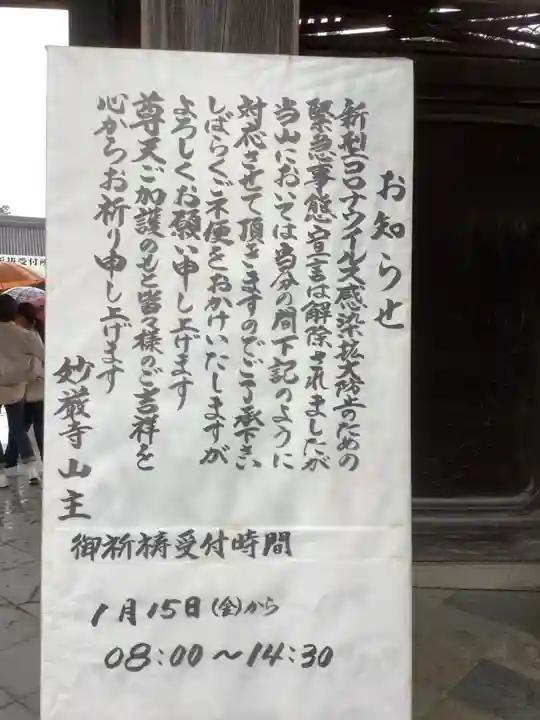 お知らせ
新型コロナウイルス感染拡大防止のための
緊急事態宣言は解除されましたが
当山においては当分の間下記のように
対応させて頂きますのでご了承下さい
しばらくご不便をおかけいたしますが
よろしくお願い申し上げます
尊天ご加護のもと皆々様のご吉祥を
心からお祈り申し上げます
妙厳寺山主
御祈祷受付時間
1月15日(金)から
08:00〜14:30
祈祷受付所